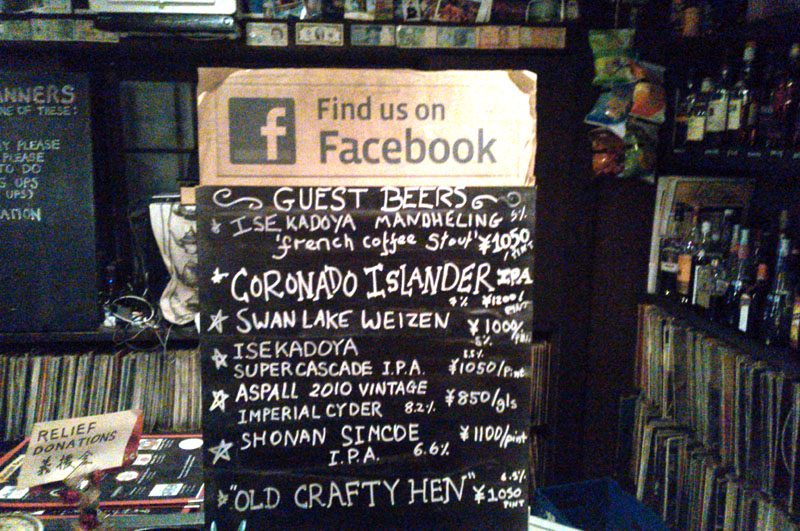 Find us on
Facebook
GUEST BEERS
ISE KADOYA MANDHELING 5%
'french coffee Stout' ¥1050
/PINT
CORONADO ISLANDER IPA
7% ¥1200/
PINT
SWAN LAKE WEIZEN ¥1000/
5%
ISEKADOYA
SUPER CASCADE I.P.A. 5.5% ¥1050/Pint
ASPALL 2010 VINTAGE ¥850/gls
IMPERIAL CYDER 8.2%
SHONAN SIMCOE ¥1100/pint
I.P.A. 6.6%
"OLD CRAFTY HEN" 6.5%
¥1050
PINT
RELIEF
DONATIONS
義援金
NE OF THESE:
PLEASE
PLEASE
TO DO
UPS
UPS)